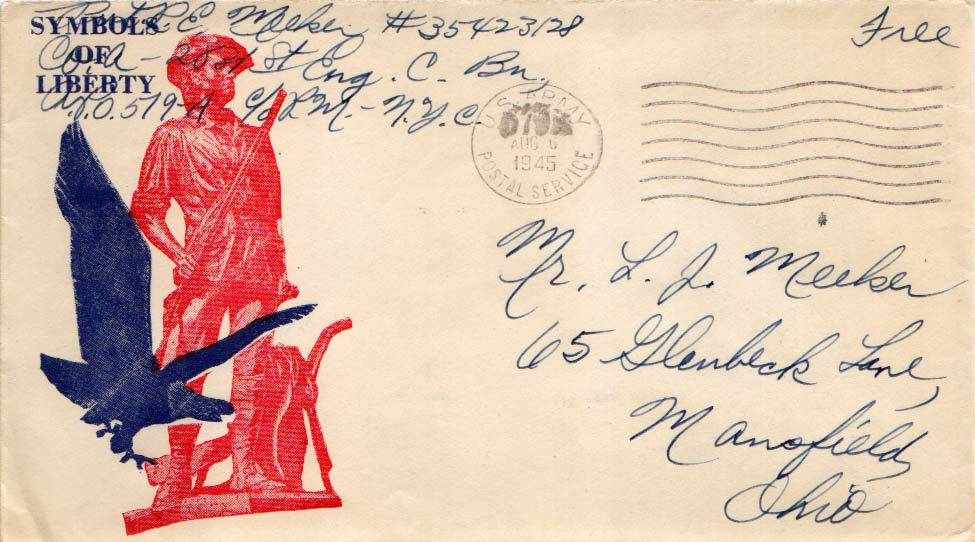 SYMBOLS
OF
LIBERTY
R. E. Meeker #35423128
Co. A - St Eng. C. Bn.
A.P.O. 519-A c/o P.M. - N.Y.C.
Free
U.S. ARMY
AUG 6
1945
POSTAL SERVICE
Mr. L. J. Meeker
65 Glenbeck Lane,
Mansfield,
Ohio